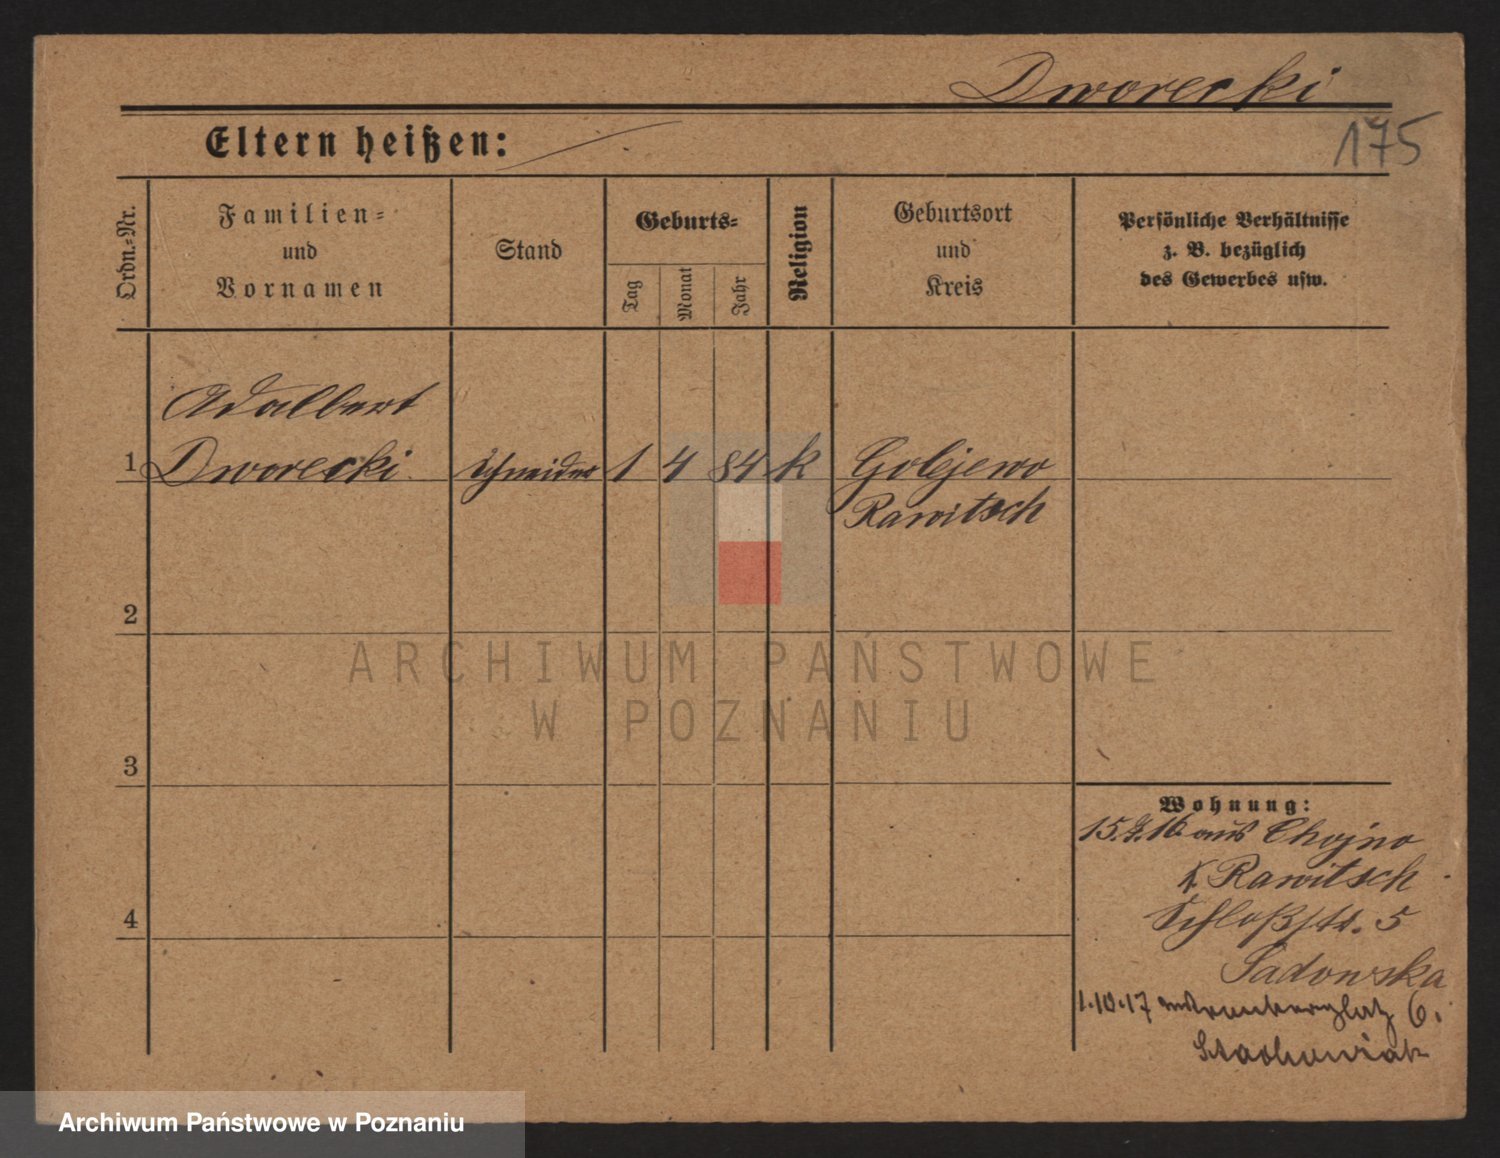 Dworecki
175
Eltern heißen:
Ordn.=Nr.
Familien=
und
Vornamen
Stand
Geburts=
Tag
Monat
Jahr
Religion
Geburtsort
und
Kreis
Persönliche Verhältnisse
z. B. bezüglich
des Gewerbes usw.
Adalbert
1 Dworecki Schneider 1 4 84 k Golejewo
Rawitsch
2
3
4
Wohnung:
15. 16 aus Chojno
K Rawitsch
Schloßstr. 5
Sadowska
1.10.17 6.
Stachowiak
ARCHIWUM PAŃSTWOWE
W POZNANIU
Archiwum Państwowe w Poznaniu